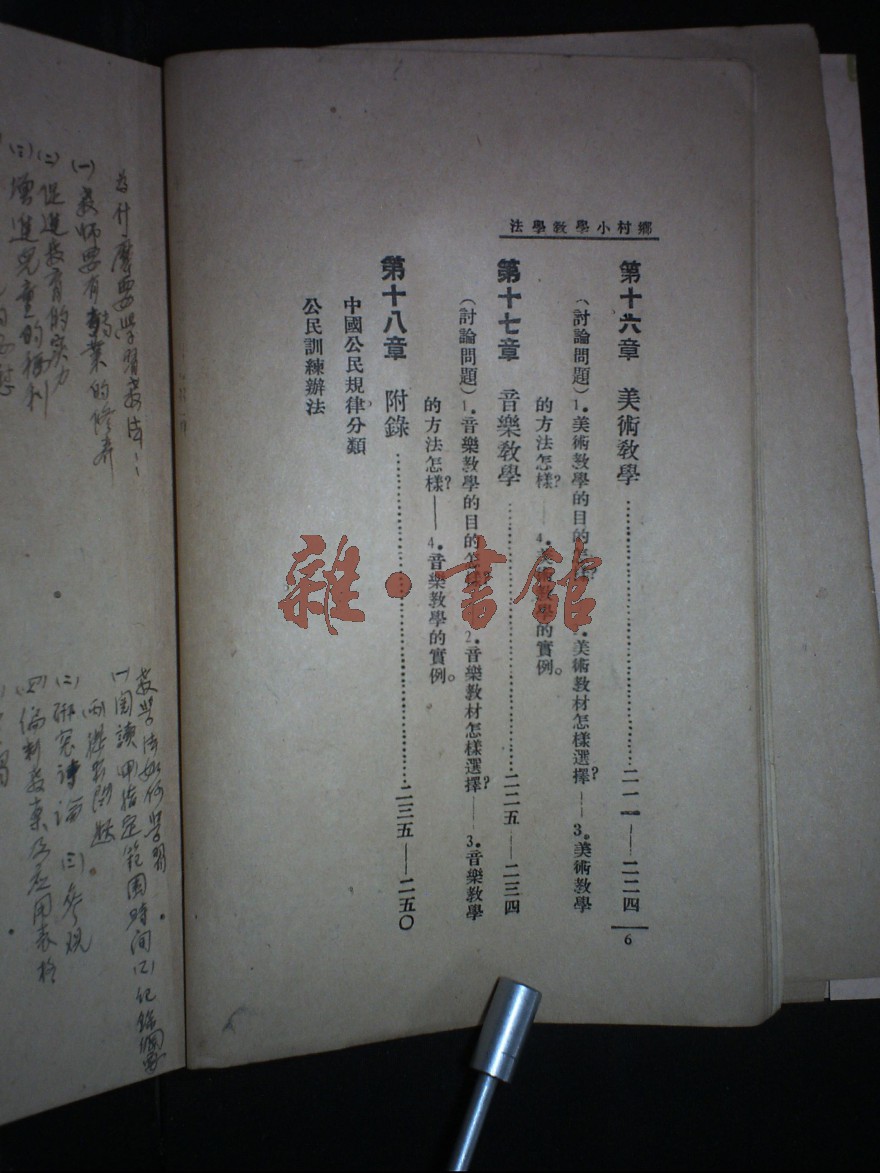 鄉村小學教學法
第十六章　美術教學……………………二一一——二二四
(討論問題) 1.美術教學的目的怎樣? 2.美術教材怎樣選擇?——3.美術教學
的方法怎樣?——4.美術教學的實例。
第十七章　音樂教學……………………二二五——二三四
(討論問題) 1.音樂教學的目的怎樣? 2.音樂教材怎樣選擇?——3.音樂教學
的方法怎樣?——4.音樂教學的實例。
第十八章　附錄……………………二三五——二五〇
中國公民規律分類
公民訓練辦法
6
雜·書館
為什麼要學習教法：
(一)教師要有專業的修養
(二)促進教育的实力
(三)增進兒童的福利
教学法如何学習
(一)閱讀 甲指定範囲時间 (乙)纪錄綱要
(丙)提出问题
(二)研究讨論 (三)参观
(四)编制教案及应用表格